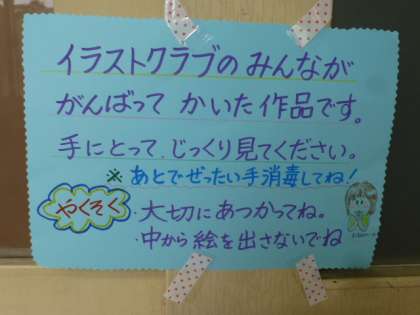 イラストクラブのみんなが
がんばって かいた作品です。
手にとって、じっくり見てください。
※あとでぜったい手消毒してね!
やくそく
・大切にあつかってね。
・中から絵を出さないでね